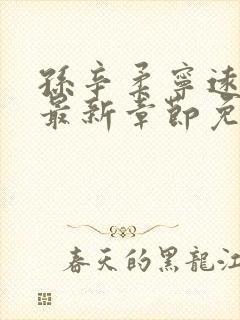 孫辛柔寧遠
最新章節免
春天的黑龍江